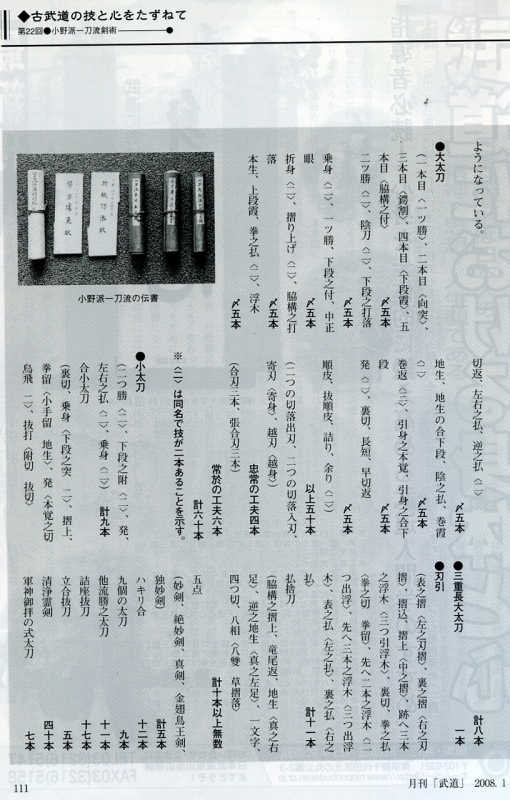 ◆古武道の技と心をたずねて
第22回●小野派一刀流剣術
ようになっている。
●大太刀
（一本目〈一ツ勝〉、二本目〈向突〉、
三本目〈鍔割〉、四本目〈下段霞〉、五
本目〈脇構之付〉
〆五本
二ツ勝〈二〉、陰刀〈二〉、下段之打落
〆五本
乗身〈二〉、一ツ勝、下段之付、中正
眼
〆五本
折身〈二〉、摺り上げ〈二〉、脇構之打
落
〆五本
本生、上段霞、拳之払〈二〉、浮木
〆五本
小野派一刀流の伝書
切返、左右之払、逆之払〈二〉
〆五本
地生、地生の合下段、陰之払、巻霞
〈二〉
〆五本
巻返〈三〉、引身之本覚、引身之合下
段
〆五本
発〈二〉、裏切、長短、早切返
〆五本
順皮、抜順皮、詰り、余り〈二〉
以上五十本
（二つの切落出刃、二つの切落入刃、
寄刃〈寄身〉、越刃〈越身〉）
忠常の工夫四本
（合刃三本、張合刃三本）
常於の工夫六本
計六十本
※〈二〉は同名で技が二本あることを示す。
●小太刀
（二つ勝〈二〉、下段之附〈二〉、発、
左右之払〈二〉、乗身〈二〉）
計九本
合小太刀
（裏切、乗身〈下段之突 二〉、摺上、
拳留〈小手留 地生〉、発〈本覚之切
鳥飛 二〉、抜打〈附切 抜切〉
計八本
●三重長大太刀
一本
●刃引
（表之摺〈左之刃摺〉、裏之摺〈右之刃
摺〉、摺込、摺上〈中之摺〉、跡へ三本
之浮木〈三つ引浮木〉、裏切、拳之払
〈拳之切 拳留〉、先へ二本之浮木〈二
つ出浮〉、先へ三本之浮木〈三ヘ出浮
木〉、表之払〈左之払〉、裏之払〈右之
払〉
計十一本
払捨刀
（脇構之摺上、竜尾返、地生〈真之右
足〉、逆之地生〈真之左足〉、一文字、
四つ切、八相〈八雙 草摺落〉
計十本以上無数
五点
（妙剣、絶妙剣、真剣、金翅鳥王剣、
独妙剣）
計五本
ハキリ合
十二本
九個の太刀
九本
他流勝之太刀
十一本
詰座抜刀
十七本
立合抜刀
五本
清浄霊剣
四十本
軍神御拝の式太刀
七本
111
月刊「武道」 2008. 1